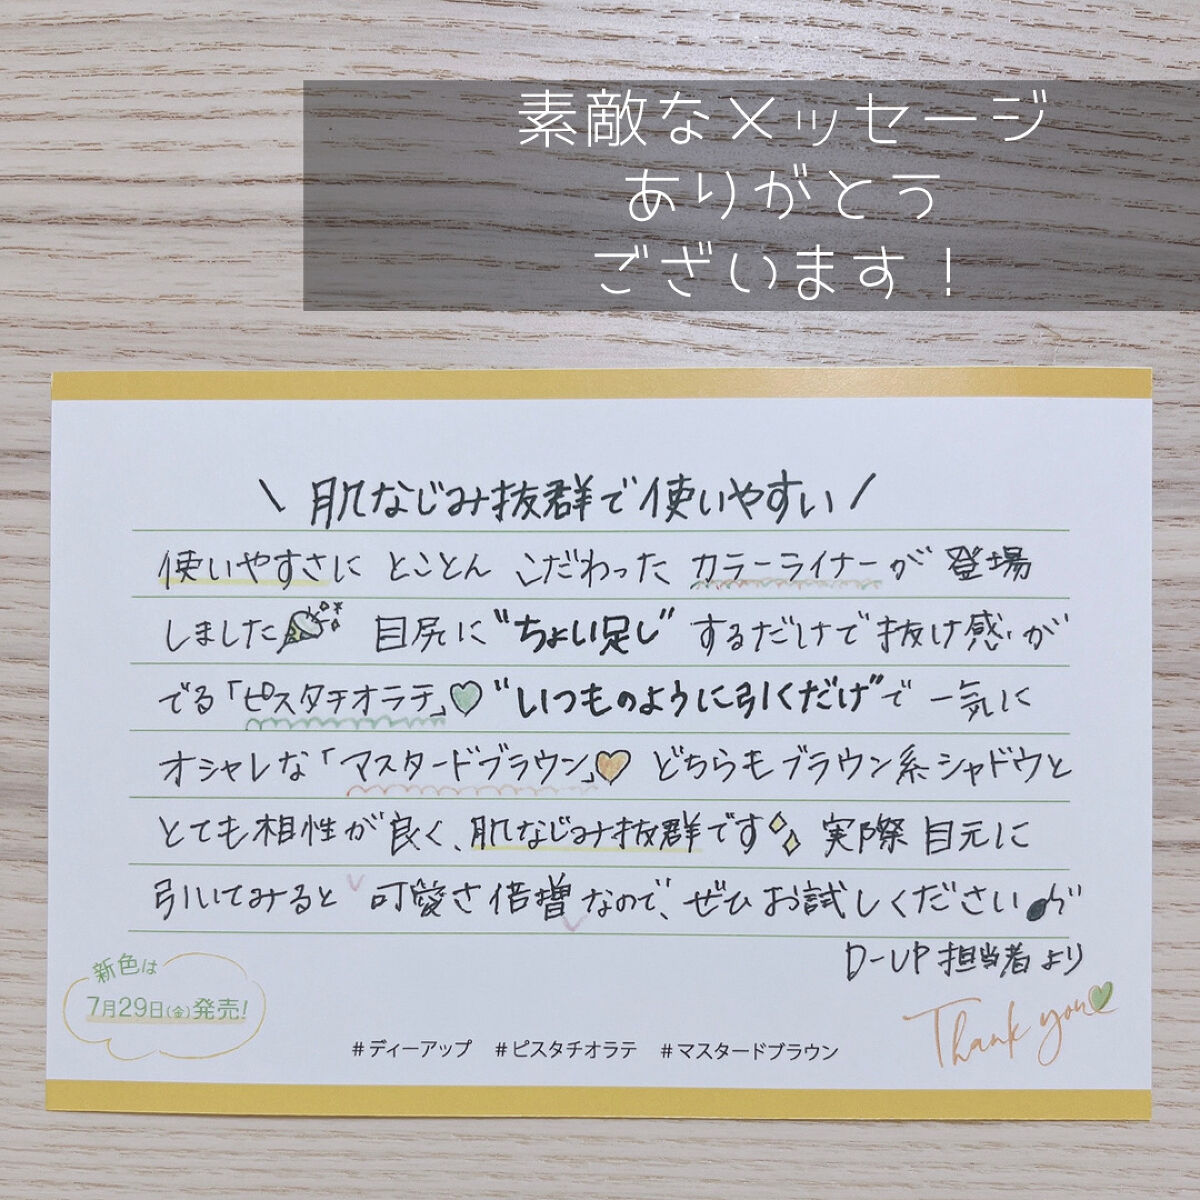 素敵なメッセージ
ありがとう
ございます！
\ 肌なじみ抜群で使いやすい /
使いやすさに とことん こだわった カラーライナーが 登場
しました 目尻に"ちょい足し" するだけで 抜け感が
でる「ピスタチオラテ」♡"いつものように引くだけ"で 一気に
オシャレな「マスタードブラウン」♡ どちらもブラウン系シャドウと
とても相性が良く、肌なじみ抜群です 実際 目元に
引いてみると 可愛さ倍増なので、ぜひお試しください♪
D-UP 担当者 より
新色は
7月29日(金)発売!
Thank you
#ディーアップ #ピスタチオラテ #マスタードブラウン